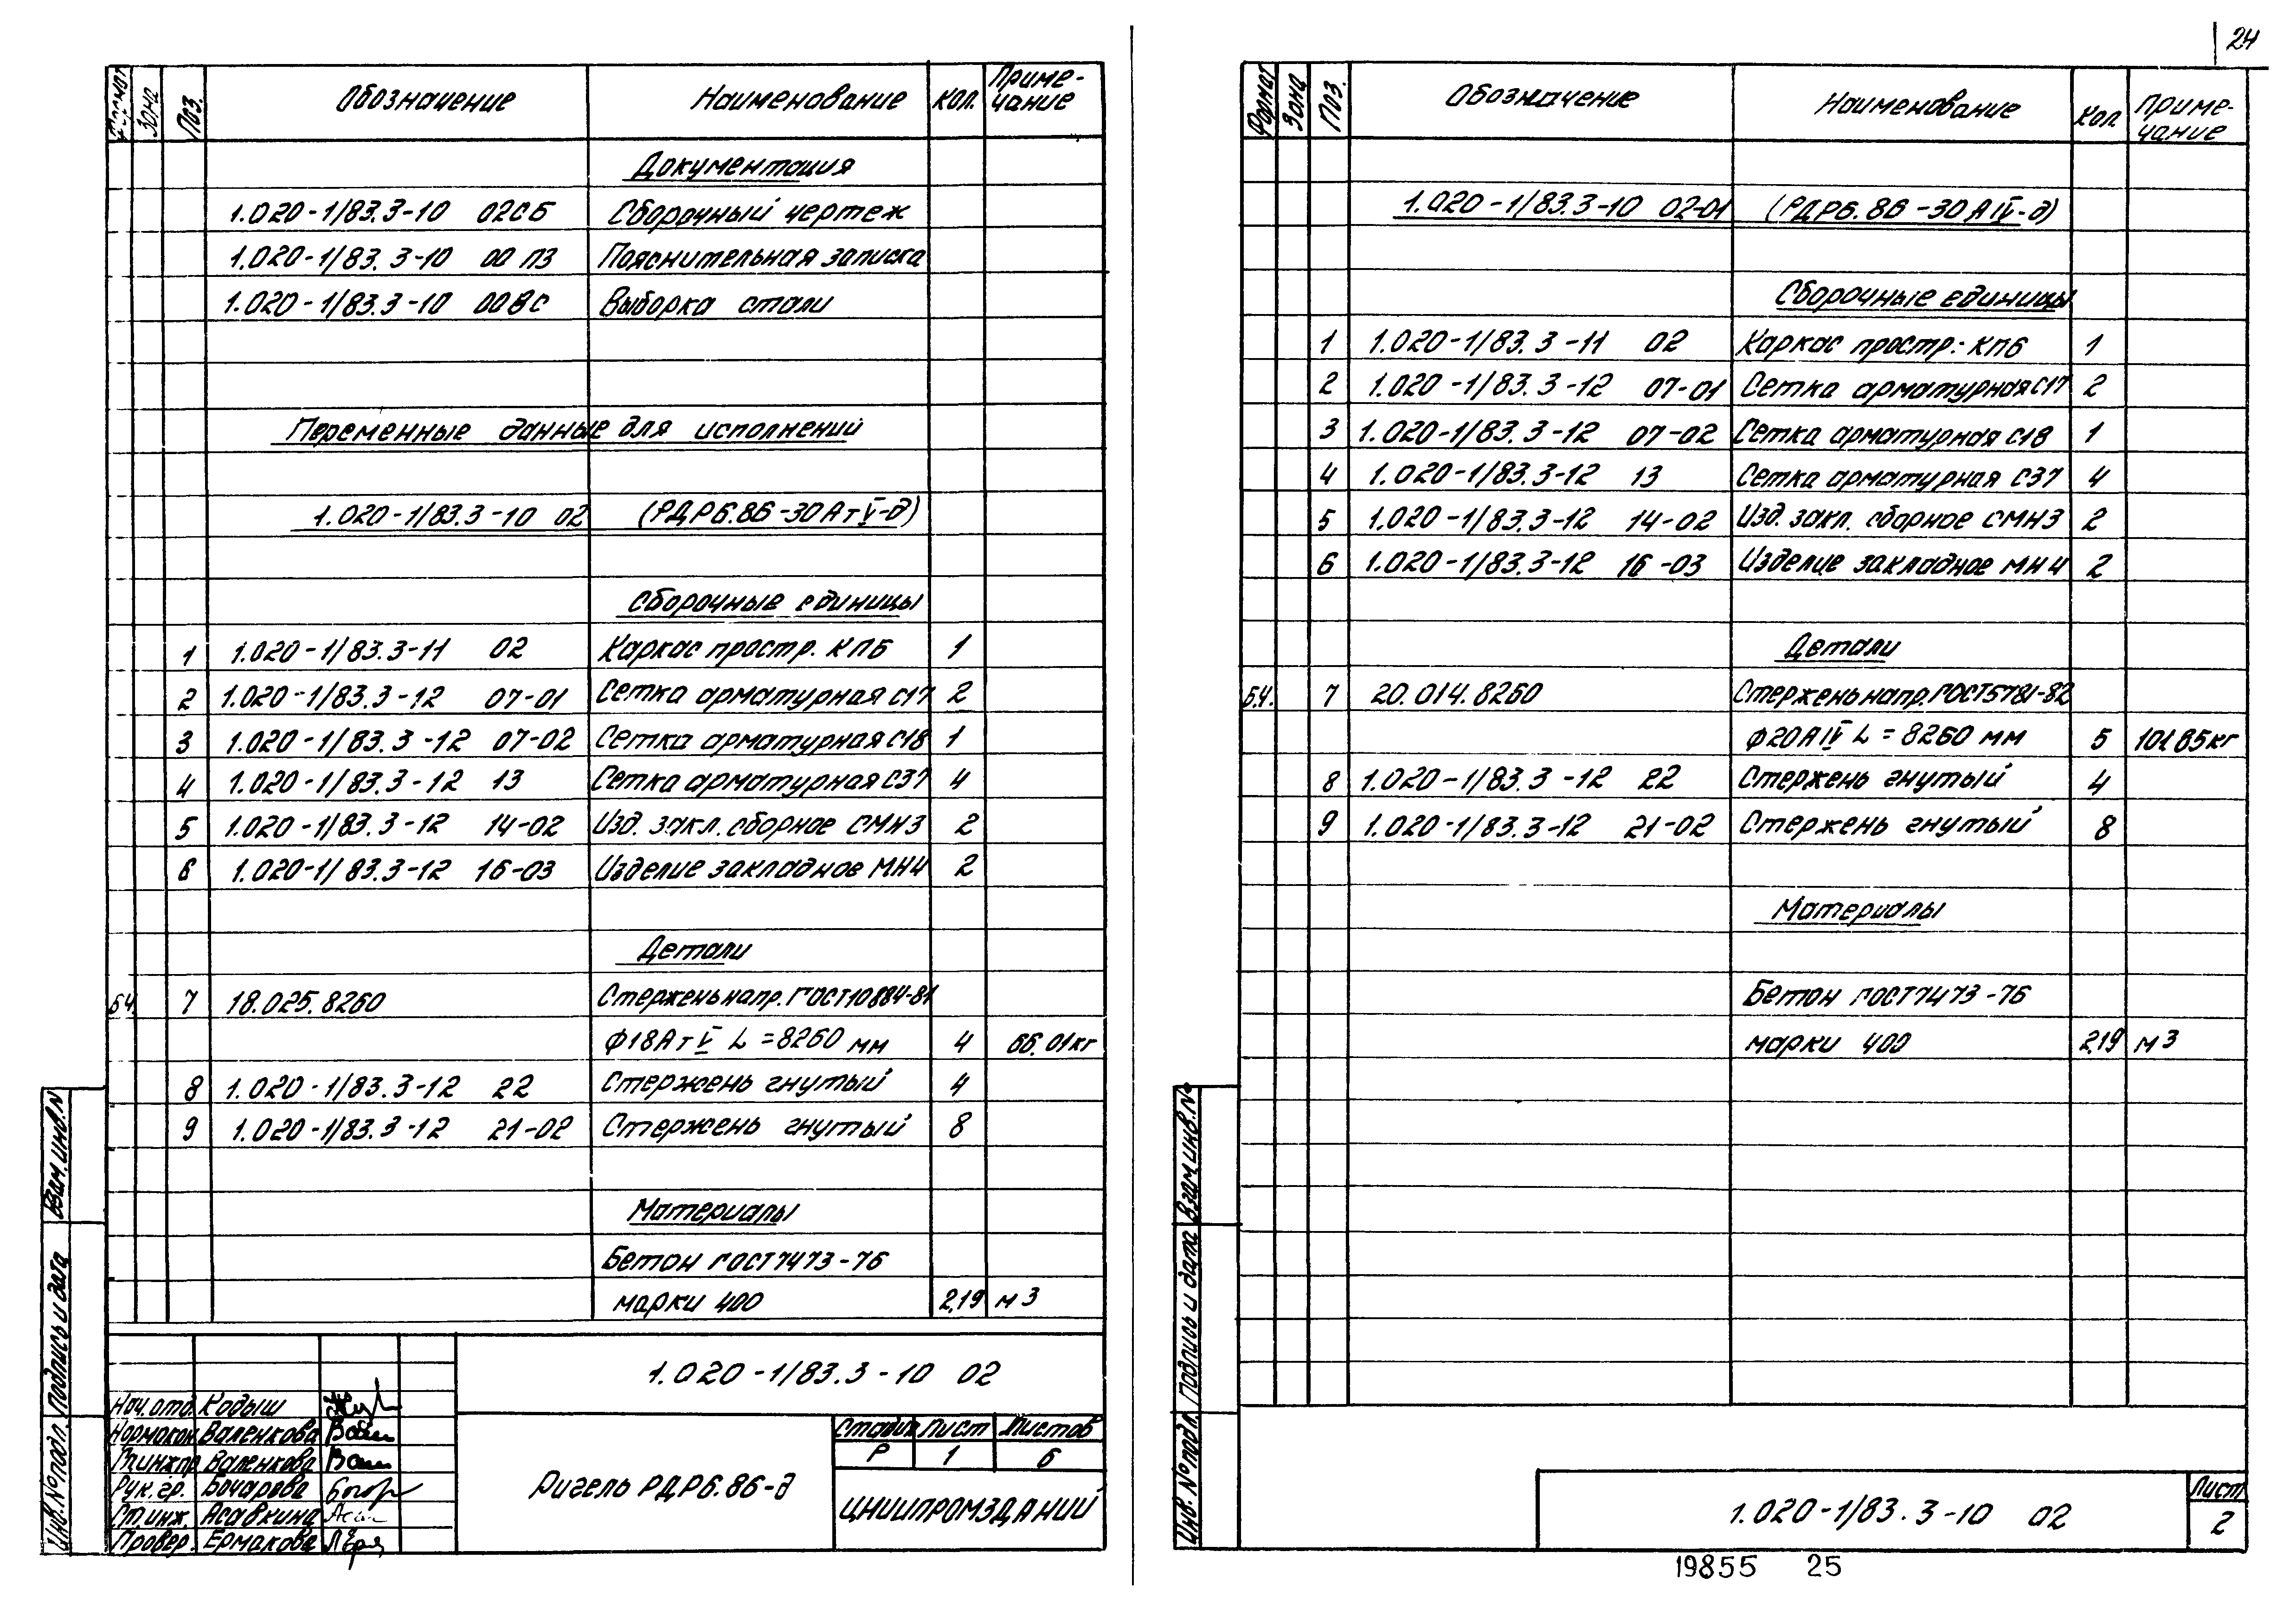 24
Формат Зона Поз. Обозначение Наименование Кол. Приме-
чание
Документация
1.020-1/83.3-10 02СБ Сборочный чертеж
1.020-1/83.3-10 00 ПЗ Пояснительная записка
1.020-1/83.3-10 00ВС Выборка стали
Переменные данные для исполнений
1.020-1/83.3-10 02 (РДР6.86-30АтV-д)
Сборочные единицы
1 1.020-1/83.3-11 02 Каркас простр. КП6 1
2 1.020-1/83.3-12 07-01 Сетка арматурная С17 2
3 1.020-1/83.3-12 07-02 Сетка арматурная С18 1
4 1.020-1/83.3-12 13 Сетка арматурная С37 4
5 1.020-1/83.3-12 14-02 Изд. закл. сборное СМН3 2
6 1.020-1/83.3-12 16-03 Изделие закладное МН4 2
Детали
БЧ. 7 18.025.8260 Стержень напр. ГОСТ10884-81
Ф18АтV L=8260 мм 4 66.01кг
8 1.020-1/83.3-12 22 Стержень гнутый 4
9 1.020-1/83.3-12 21-02 Стержень гнутый 8
Материалы
Бетон ГОСТ7473-76
марки 400 2,19 м3
1.020-1/83.3-10 02
Нач.отд. Кодыш
Нормокон Валенкова
Гл.инж.пр Валенкова
Рук.гр. Бочарова
Ст.инж. Асавкина
Провер. Ермакова
Ригель РДР6.86-д
Стадия Лист Листов
Р 1 6
ЦНИИПРОМЗДАНИЙ
Инв.№подл. Подпись и дата Взам.инв.N
Формат Зона Поз. Обозначение Наименование Кол Приме-
чание
1.020-1/83.3-10 02-01 (РДР6.86-30АIV-д)
Сборочные единицы
1 1.020-1/83.3-11 02 Каркас простр. КП6 1
2 1.020-1/83.3-12 07-01 Сетка арматурная С17 2
3 1.020-1/83.3-12 07-02 Сетка арматурная С18 1
4 1.020-1/83.3-12 13 Сетка арматурная С37 4
5 1.020-1/83.3-12 14-02 Изд. закл. сборное СМН3 2
6 1.020-1/83.3-12 16-03 Изделие закладное МН4 2
Детали
Б.Ч. 7 20.014.8260 Стержень напр. ГОСТ5781-82
Ф20АIV L=8260 мм 5 101.85кг
8 1.020-1/83.3-12 22 Стержень гнутый 4
9 1.020-1/83.3-12 21-02 Стержень гнутый 8
Материалы
Бетон ГОСТ7473-76
марки 400 2,19 м3
Инв.№подл. Подпись и дата Взам.инв.№
1.020-1/83.3-10 02
Лист
2
19855 25